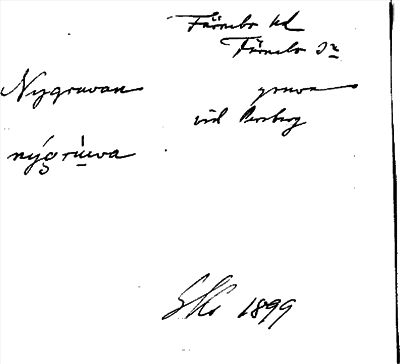 Färnebo hd
Färnebo sn
Nygruvan gruva
vid Persberg
nýgrúwa
EHs 1899